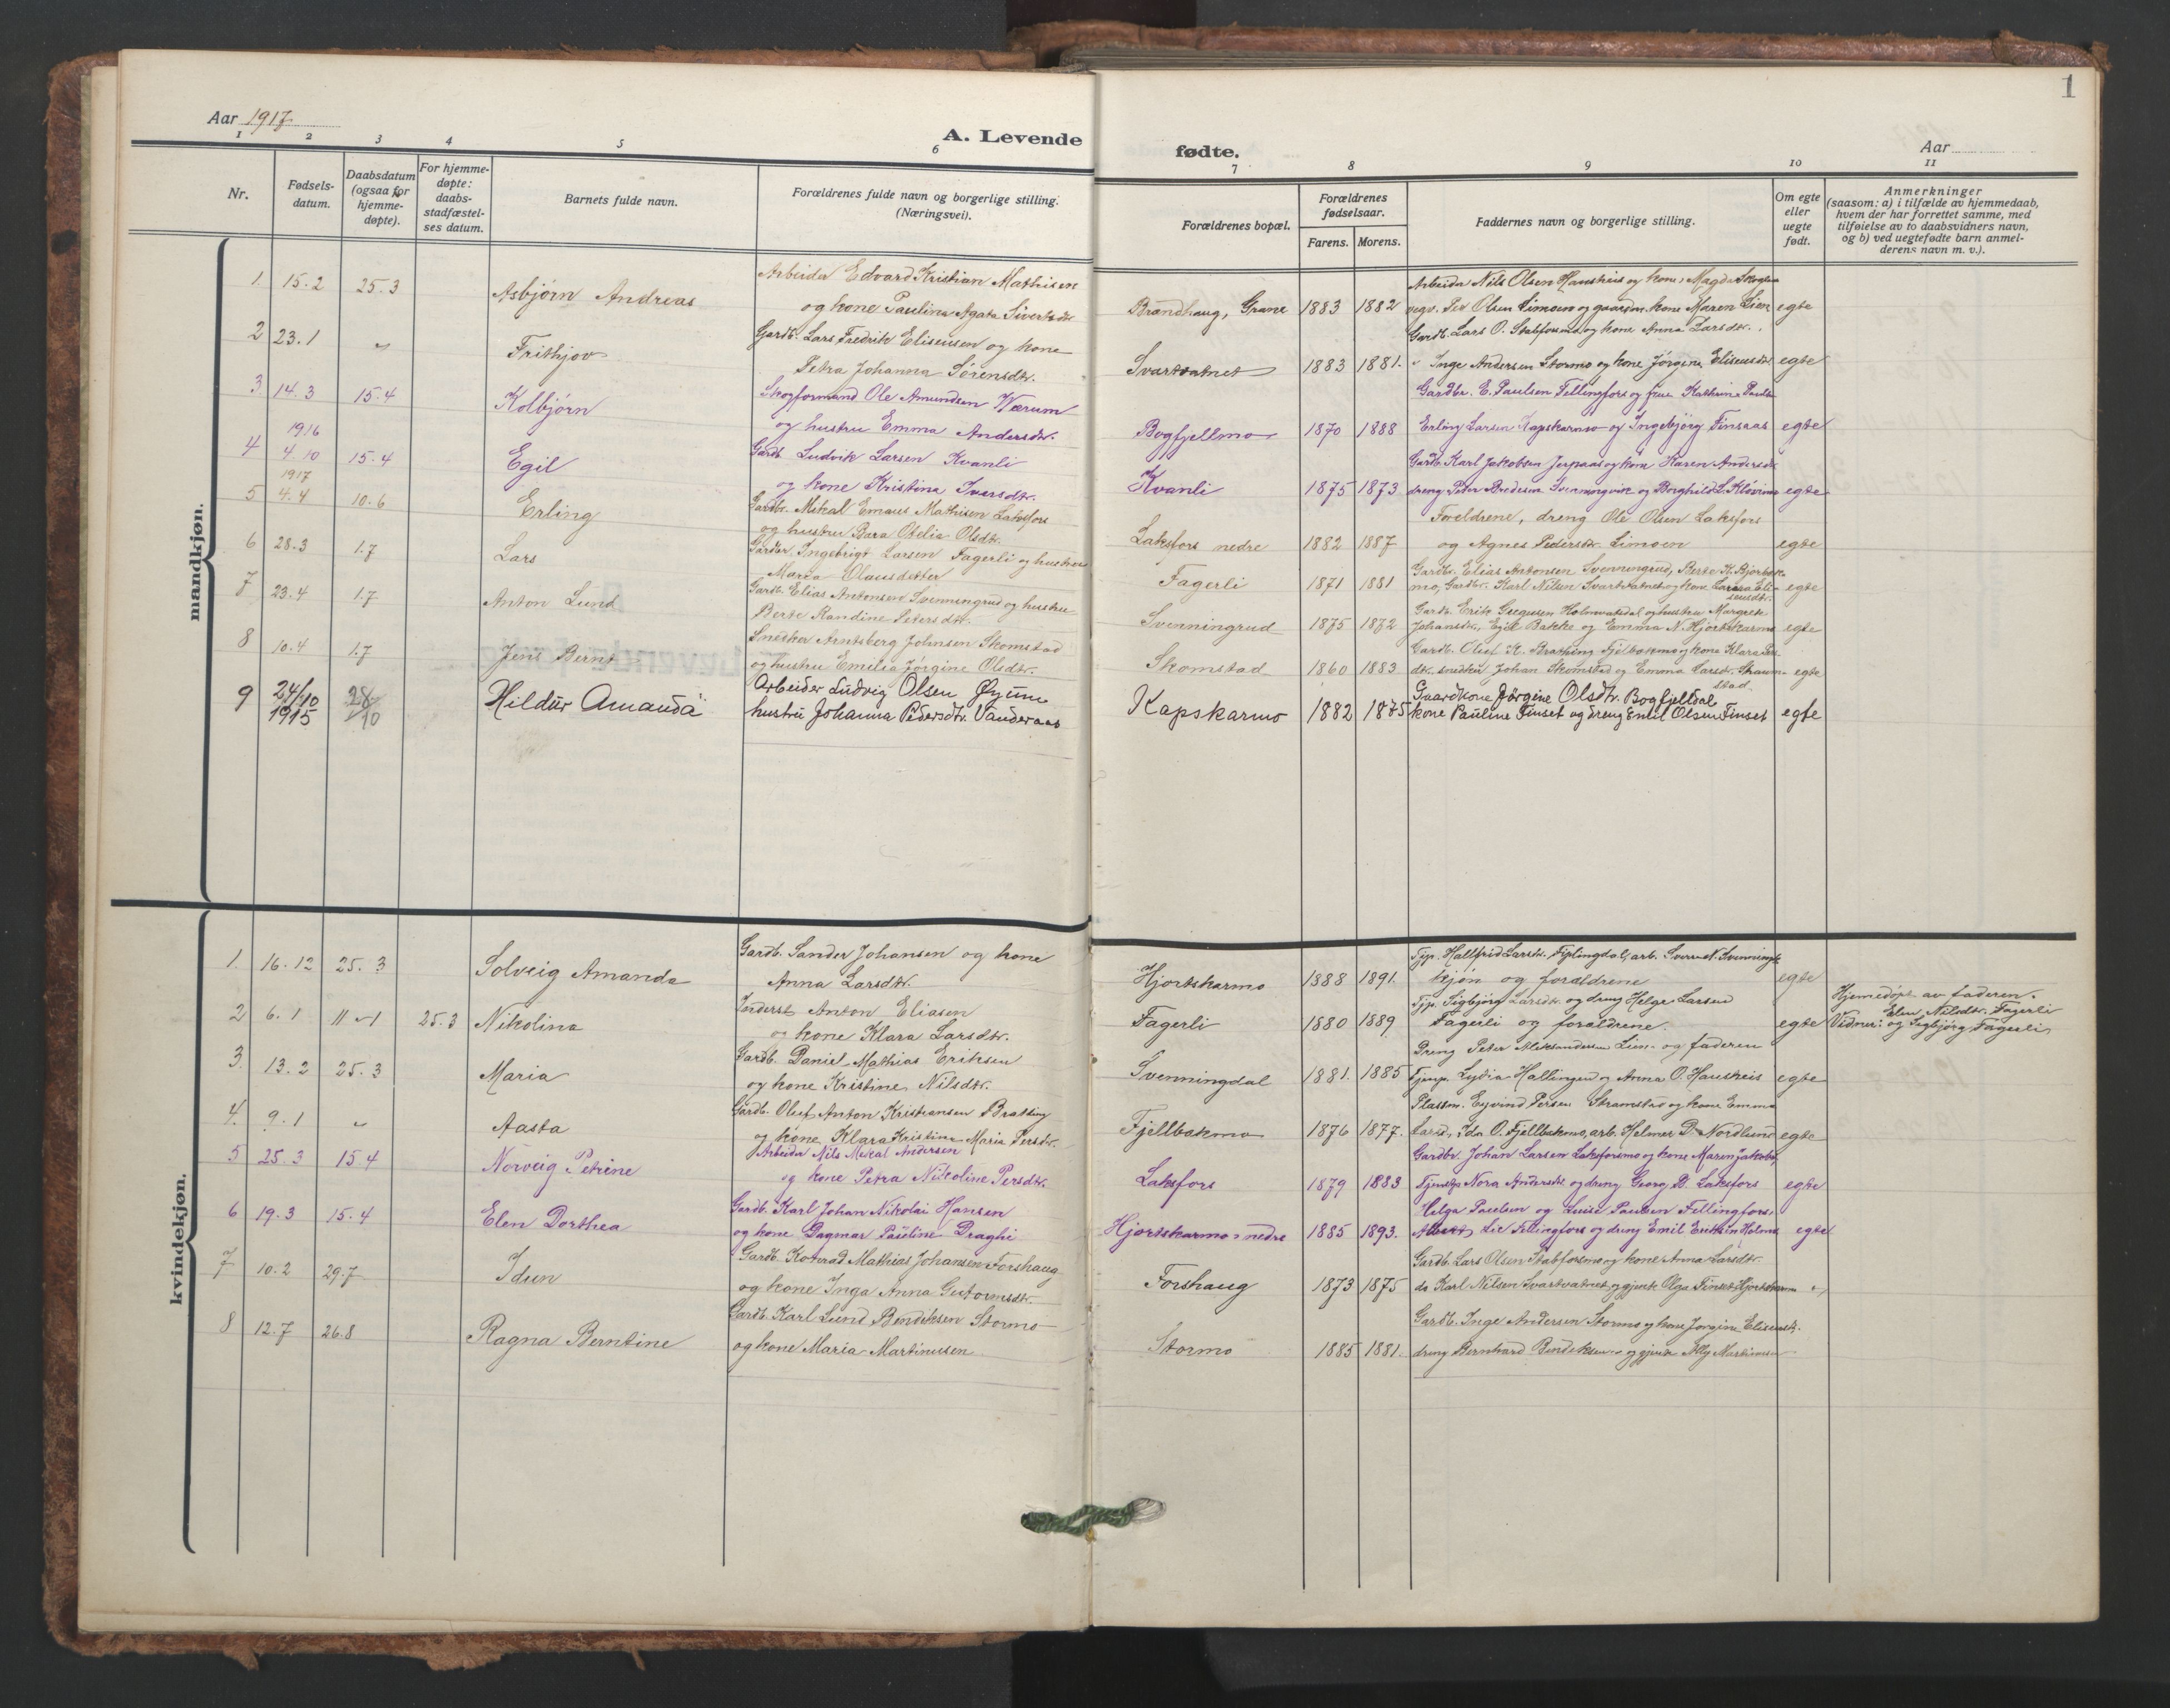 1
Aar 1917
A. Levende
fødte.
Aar
1 2 3 4 5 6 7 8 9 10 11
Nr.
Fødsels-
datum.
Daabsdatum
(ogsaa for
hjemme-
døpte).
For hjemme-
døpte:
daabs-
stadfæstel-
ses datum.
Barnets fulde navn.
Forældrenes fulde navn og borgerlige stilling.
(Næringsvei).
Forældrenes bopæl.
Forældrenes
fødselsaar.
Farens. Morens.
Faddernes navn og borgerlige stilling.
Om egte
eller
uegte
født.
Anmerkninger
(saasom: a) i tilfælde av hjemmedaab,
hvem der har forrettet samme, med
tilføielse av to daabsvidners navn,
og b) ved uegtefødte barn anmel-
derens navn m. v.).
mandkjøn.
1. 15.2 25.3 Asbjørn Andreas
Arbeider Edvard Kristian Mathisen
og kone Paulina Agata Sivertsdtr.
Brændhaug, Grane 1883 1882
Arbeider Nils Olsen Hauskeis og kone, Magda
vegv. Per Olsen Limoen og gaardm. kone Maren Lien egte
2 23.1 " Frithjov
Gardb. Lars Fredrik Eliseusen og kone
Petra Johanna Sørensdtr.
Svartvatnet 1883 1881.
Gardb. Lars O. Stabforsmo og kone Anna Larsdtr.,
" Inge Andersen Stormo og kone Jørgine Eliseusdtr. egte
3 14.3 15.4 Kolbjørn
Skogformand Ole Amundsen Værum
og hustru Emma Andersdtr.
Bogfjellmo 1870 1888
Gardbr. E. Paulsen Fellingfors og frue Kathrine
Erling Larsen Kapskarmo og Ingebjörg Finsaas egte
4 1916
4.10 15.4 Egil
Gardb. Ludvik Larsen Kvanli
og kone Kristina Iversdtr.
Kvanli 1875 1873
Gardb. Karl Jakobsen Jerpaas og kone Karen Andersdtr.
dreng Peter Svenningvik og Borghild L. egte
5 1917
4.4 10.6 Erling
Gardbr. Mikal Emaus Mathisen Laksfors
og hustru Bara Otelie Olsdtr.
Laksfors nedre 1882 1887
Foreldrene, dreng Ole Olsen Laksfors
og Agnes Pedersdtr. Limoen egte
6 28.3 1.7 Lars
Gardbr. Ingebrigt Larsen Fagerli og hustru
Maria Olausdatter
Fagerli 1871 1881
Gardbr. Elias Antonsen Svenningrud, Berte K. Bjorbek-
mo, Gardbr. Karl Nilsen Svartvatnet og kone Larssa Eli-
seusdtr. egte
7 23.4 1.7 Anton Lund
Gardb. Elias Antonsen Svenningrud og hustru
Berte Randine Petersdtr.
Svenningrud 1875 1872
Gardb. Erik Gregusen Holmvatsdal og hustru Margrete
Johansdtr., Egil Bakke og Emma N. Hjortskarmo egte
8 10.4 1.7 Jens Bernt
Snedker Arntsberg Johnsen Skomstad
og hustru Emilia Jørgine Olsdtr.
Skomstad 1860 1883
Gardb. Oluf K. Fjelbakmo og kone Klara Per
dtr. snedker Johan Skomstad og Emma Larsdtr. Straum-
stad. egte
9 24/10
1915 28/10 Hildur Amanda
Arbeider Ludvig Olsen Øyum
hustru Johanna Pedersdtr. Vanderaas
Kapskarmo 1882 1875
Gaardkone Jørgine Olsdtr. Bogfjelldal
kone Pauline Finset og dreng Emil Olsen Finset egte
kvindekjøn.
1. 16.12 25.3 Solveig Amanda
Gardb. Sander Johansen og kone
Anna Larsdtr.
Hjortskarmo 1888 1891.
Tjp. Hallfrid Larsdtr. Fiplingdal, arb. Sverre N. Svenning-
hjón og forældrene egte
2 6.1 11-1 25.3 Nikolina
Inderst Anton Eliasen
og kone Klara Larsdtr.
Fagerli 1880 1889
Tjp. Sigbjörg Larsdtr. og dreng Helge Larsen
Fagerli og forældrene. egte
Hjemedöpt av faderen.
Vidner: Elen Nilsdtr. Fagerli
og Sigbjörg Fagerli
3. 13.2 25.3 Maria
Gardb. Daniel Mathias Eriksen
og kone Kristine Nilsdtr.
Svenningdal 1881. 1885
Dreng Peter Aleksandersen Lien og faderen
Tjenp. Lydia Hallingen og Anna O. Hauskeis egte
4. 9.1 " Aasta
Gardb. Oluf Anton Kristiansen Bratting
og kone Klara Kristine Maria Persdtr.
Fjellbakmo 1876 1877.
Plassm. Eyvind Persen Stramstad og kone Emma
Larsd., Ida O. Fjellbakmo, arb. Helmer D. Nordlund egte
5 25.3 15.4 Norveig Petrine
Arbeider Nils Mikal Andersen
og kone Petra Nikoline Persdtr.
Laksfors 1879 1883
Gardbr. Johan Larsen Laksforsmo og kone Maren Jakobs
Tjenestp. Nora Andersdtr. og dreng Georg B. Laksfors egte
6 19.3 15.4 Elen Dorthea
Gardb. Karl Johan Nikolai Hansen
og kone Dagmar Pauline Draghi
Hjortskarmo nedre 1885 1893.
Helga Paulsen og Luise Paulsen Fellingfors
Lie Fellingfors og dreng Emil Eriksen Holmo egte
7 10.2 29.7 Idun
Gardb. Konrad Mathias Johansen Forshaug
og kone Inga Anna Gutormsdtr.
Forshaug 1873 1875
Gardb. Lars Olsen Stabforsmo og kone Anna Larsdtr.
do Karl Nilsen Svartvatnet og gjente Olga Finset Hjortskarm "
8 12.7 26.8 Ragna Berntine
Gardb. Karl Lund Bendiksen Stormo
og kone Maria Martinusen
Stormo 1885 1881.
Gardb. Inge Andersen Stormo og kone Jørgine Eliseusdtr.
dreng Bernhard Bendiksen og gjente Ally Martinusen